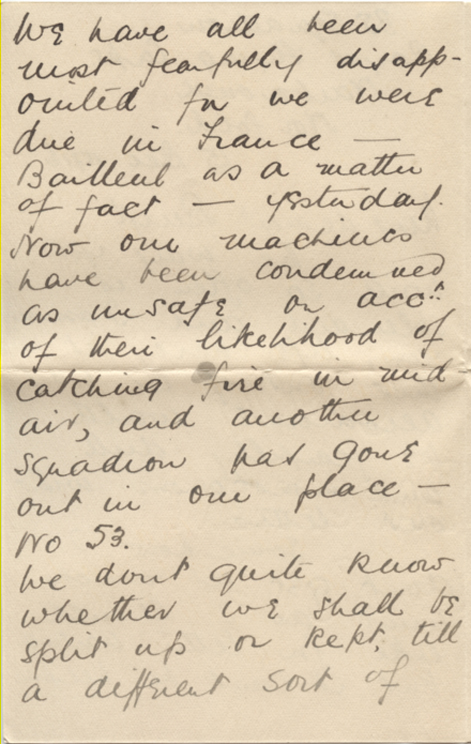 We have all been
most fearfully disapp-
ointed for we were
due in France —
Bailleul as a matter
of fact — yesterday.
Now our machines
have been condemned
as unsafe on acct
of their likelihood of
catching fire in mid
air, and another
squadron has gone
out in our place —
No 53.
We dont quite know
whether we shall be
split up or kept, till
a different sort of